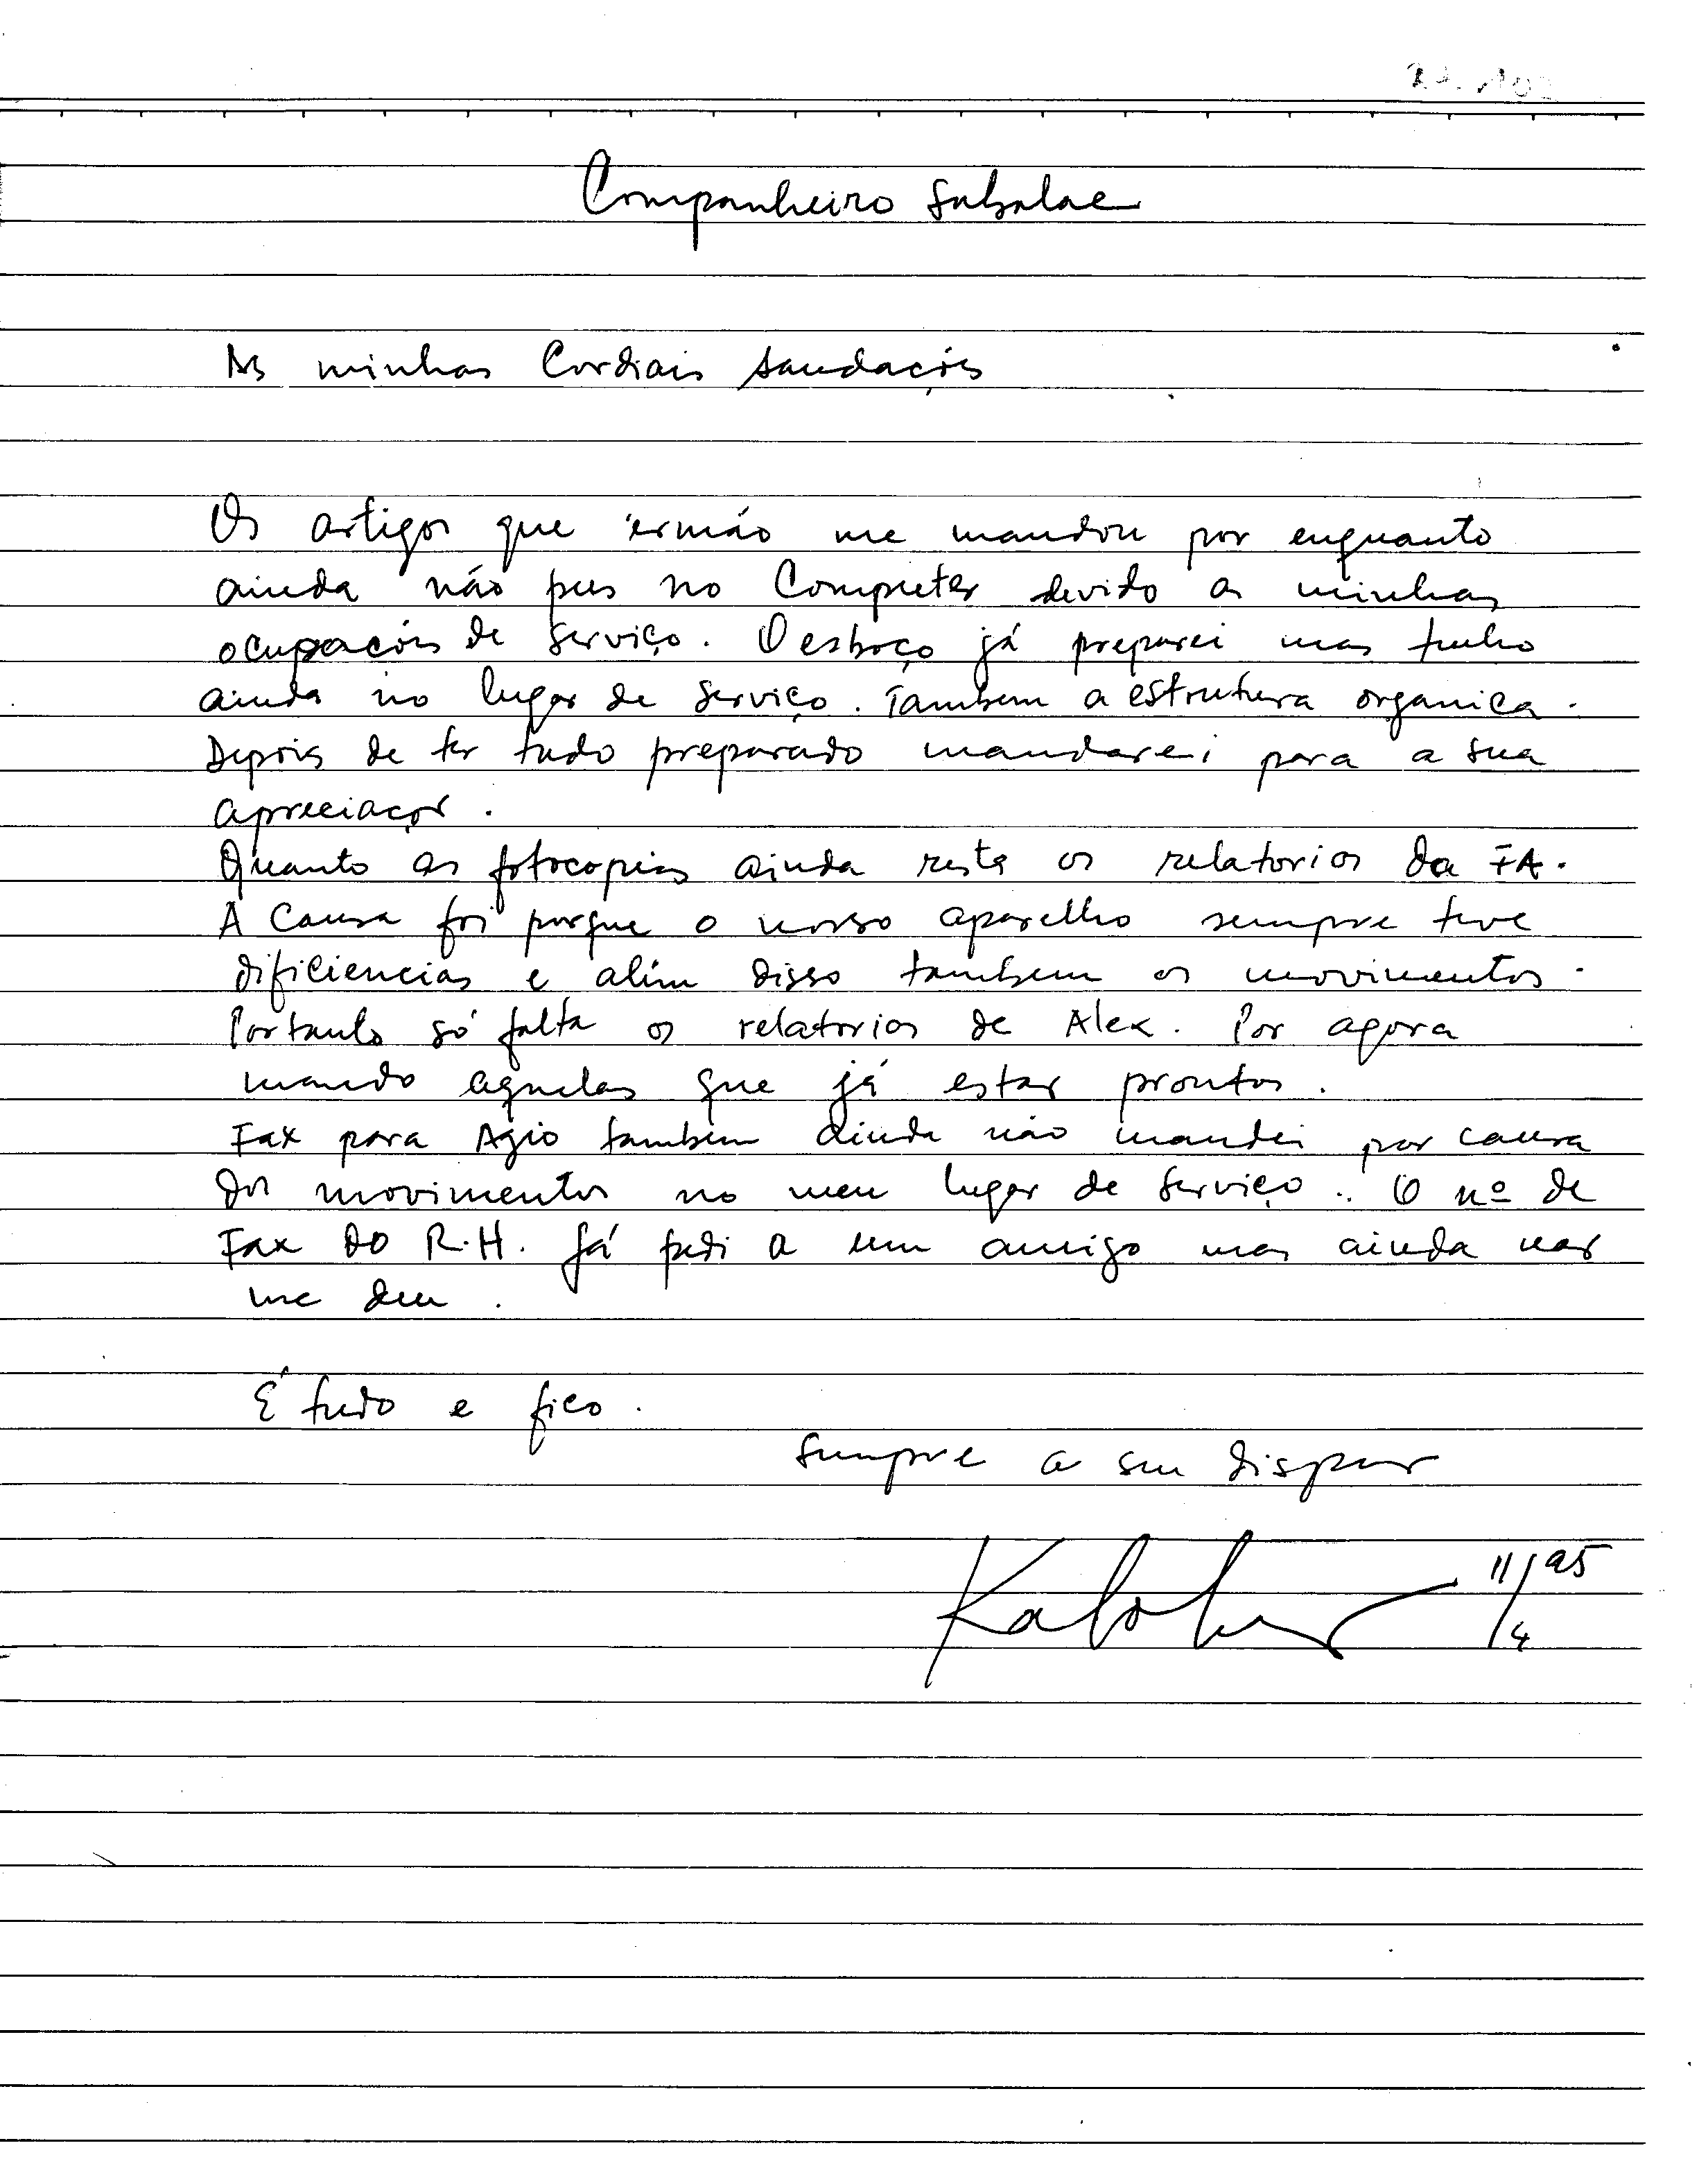 Companheiro Sabalae
As minhas Cordiais saudações
Os artigos que ermão me mandou por enquanto
ainda não pus no Computer devido as minhas
ocupações de serviço. O esboço já preparei mas tenho
ainda no lugar de serviço. Tambem a estrutura organica.
Depois de ter tudo preparado mandarei para a sua
apreciaçor.
Quanto as fotocopias ainda resta os relatorios da FA.
A Causa foi porque o nosso aparelho sempre teve
dificiencias e além disso tambem os movimentos.
Portanto só falta os relatorios de Alex. Por agora
mando aquelas que já estar prontos.
Fax para Agio tambem ainda não mandei por causa
dos movimentos no meu lugar de serviço.. O nº de
Fax DO R.H. já pedi a um amigo mas ainda nar
me deu.
É tudo e fico.
Sempre a seu dispor
11/4 95